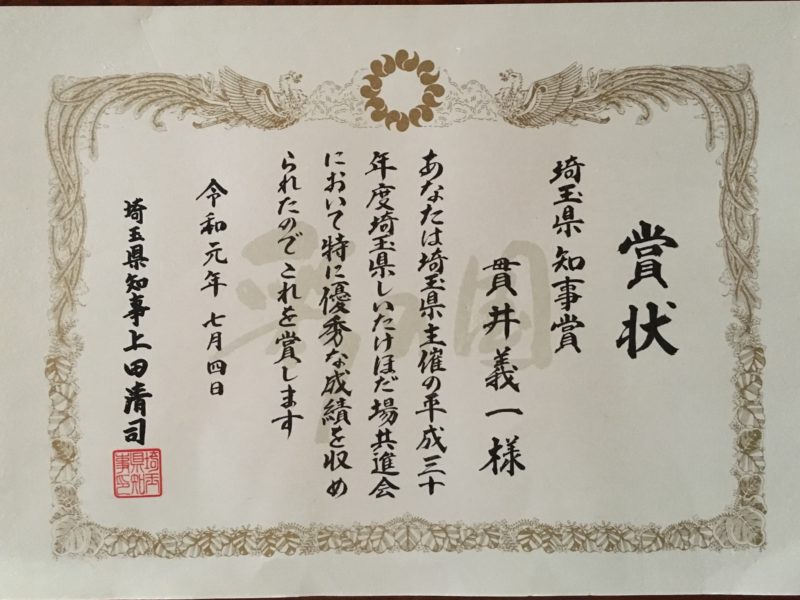 賞状
埼玉県知事賞
貫井義一様
あなたは埼玉県主催の平成三十
年度埼玉県しいたけほだ場共進会
において特に優秀な成績を収め
られたのでこれを賞します
令和元年七月四日
埼玉県知事上田清司
彩の国
埼玉
県知
事印